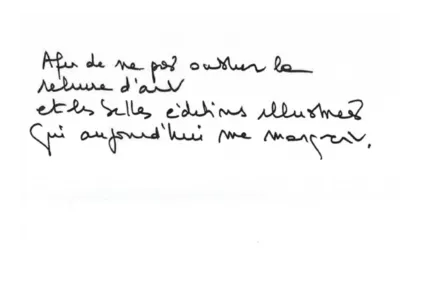 Afin de ne pas oublier la
reliure d'art
et les belles éditions illustrées
Qui aujourd'hui me manquent.